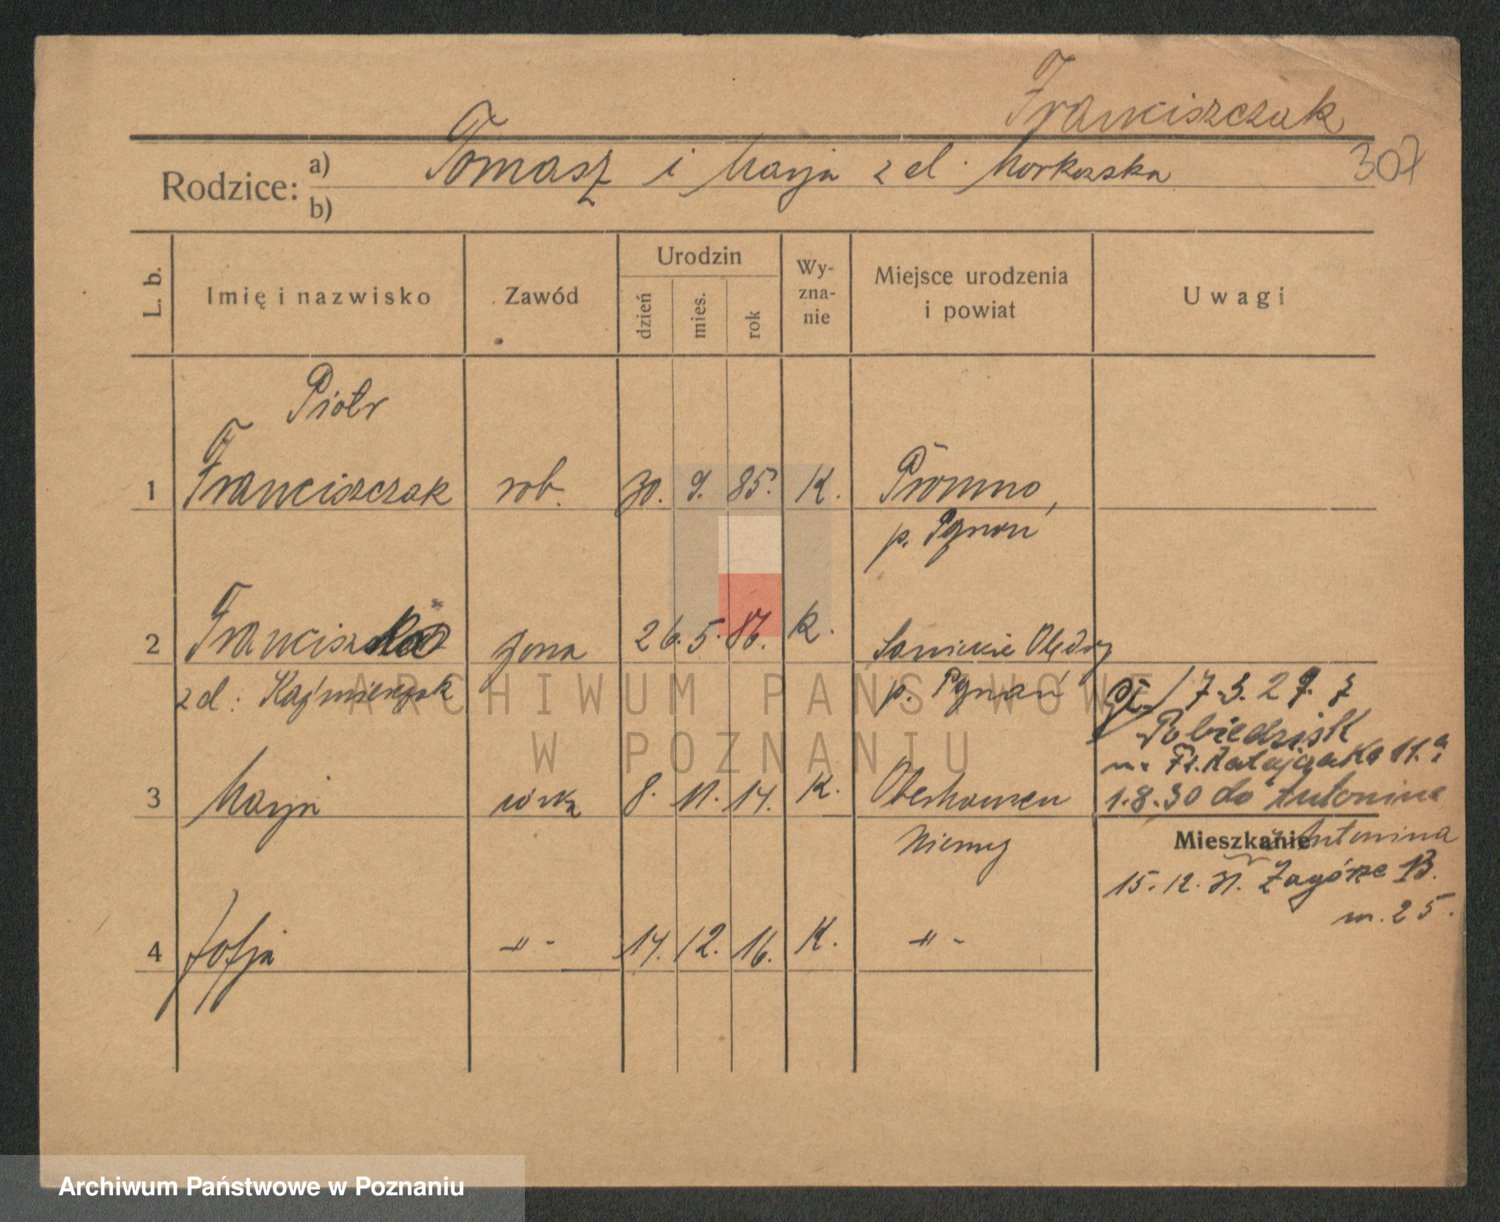 Franciszczak
307
Rodzice: a) Tomasz i Marja z d. Morkowska
b)
L. b. Imię i nazwisko Zawód Urodzin dzień mies. rok Wy-zna-nie Miejsce urodzenia i powiat Uwagi
Piotr
1 Franciszczak rob. 30. 9. 85. K. Promno,
p. Poznań
2 Franciszka żona 26. 5. 86. K. Sanickie Olędry
z d. Kaźmierczak p. Poznań
17.3.29. z
Pobiedzisk
m. Fr. Ratajczaka 11.a
3 Marja córka 8. 11. 14. K. Oberhausen 1.8.30 do Antonina
Niemcy
Mieszkanie
Antonina
15.12.31. Zagórze 13.
m. 25.
4 Zofja -"- 14. 12. 16. K. -"-
ARCHIWUM PAŃSTWOWE
W POZNANIU
Archiwum Państwowe w Poznaniu